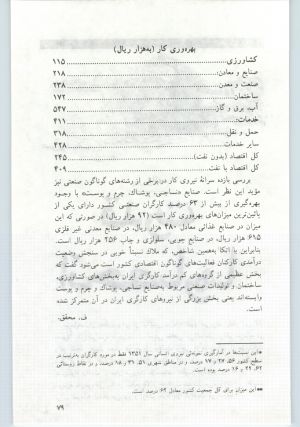 بهره‌وری کار (به‌هزار ریال)
کشاورزی ۱۱۵
صنایع و معادن: ۲۱۸
صنعت و معدن ۲۳۸
ساختمان ۱۷۲
آب، برق و گاز ۵۴۷
خدمات: ۴۱۱
حمل و نقل ۳۱۸
سایر خدمات ۴۲۸
کل اقتصاد (بدون نفت) ۲۴۵
کل اقتصاد با نفت ۴۰۹
بررسی بازده سرانهٔ نیروی کار در برخی از رشته‌های گوناگون صنعتی نیز
مؤید این نظر است. صنایع «نساجی، پوشاک، چرم و پوست» با وجود
بهره‌گیری از بیش از ۶۳ درصد کارگران صنعتی کشور دارای یکی از
پائین‌ترین میزان‌های بهره‌وری کار است (۹۲ هزار ریال) در صورتی که این
میزان در صنایع غذائی معادل ۴۸۰ هزار ریال، در صنایع معدنی غیر فلزی
۶۱۵ هزار ریال، در صنایع چوبی، سلولزی و چاپ ۲۵۶ هزار ریال است.
بنابراین با اتکا به‌همین شاخص، که ملاک نسبتاً خوبی در سنجش وضعیت
درآمدی کارکنان فعالیت‌های گوناگون اقتصادی کشور است می‌شود گفت که
بخش عظیمی از گروه‌های کم درآمد کارگری ایران به‌بخش‌های کشاورزی،
ساختمان و تولیدات صنعتی مربوط به‌صنایع نساجی، پوشاک و چرم و پوست
وابسته‌اند یعنی بخش بزرگی از نیروهای کارگری ایران در آن متمرکز شده
است.
ف. محقق.
* این نسبت‌ها در آمارگیری نمونه‌ئی نیروی انسانی سال ۱۳۵۱ فقط در مورد کارگران به‌ترتیب در
سطح کشور ۵۶، ۲۷ و ۱۷ درصد، و در مناطق شهری ۵۱، ۳۱ و ۱۸ درصد، و در نقاط روستائی
۶۲، ۲۲ و ۱۶ درصد بوده است.
** این میزان برای کل جمعیت کشور معادل ۶۹ درصد است.
۷۹